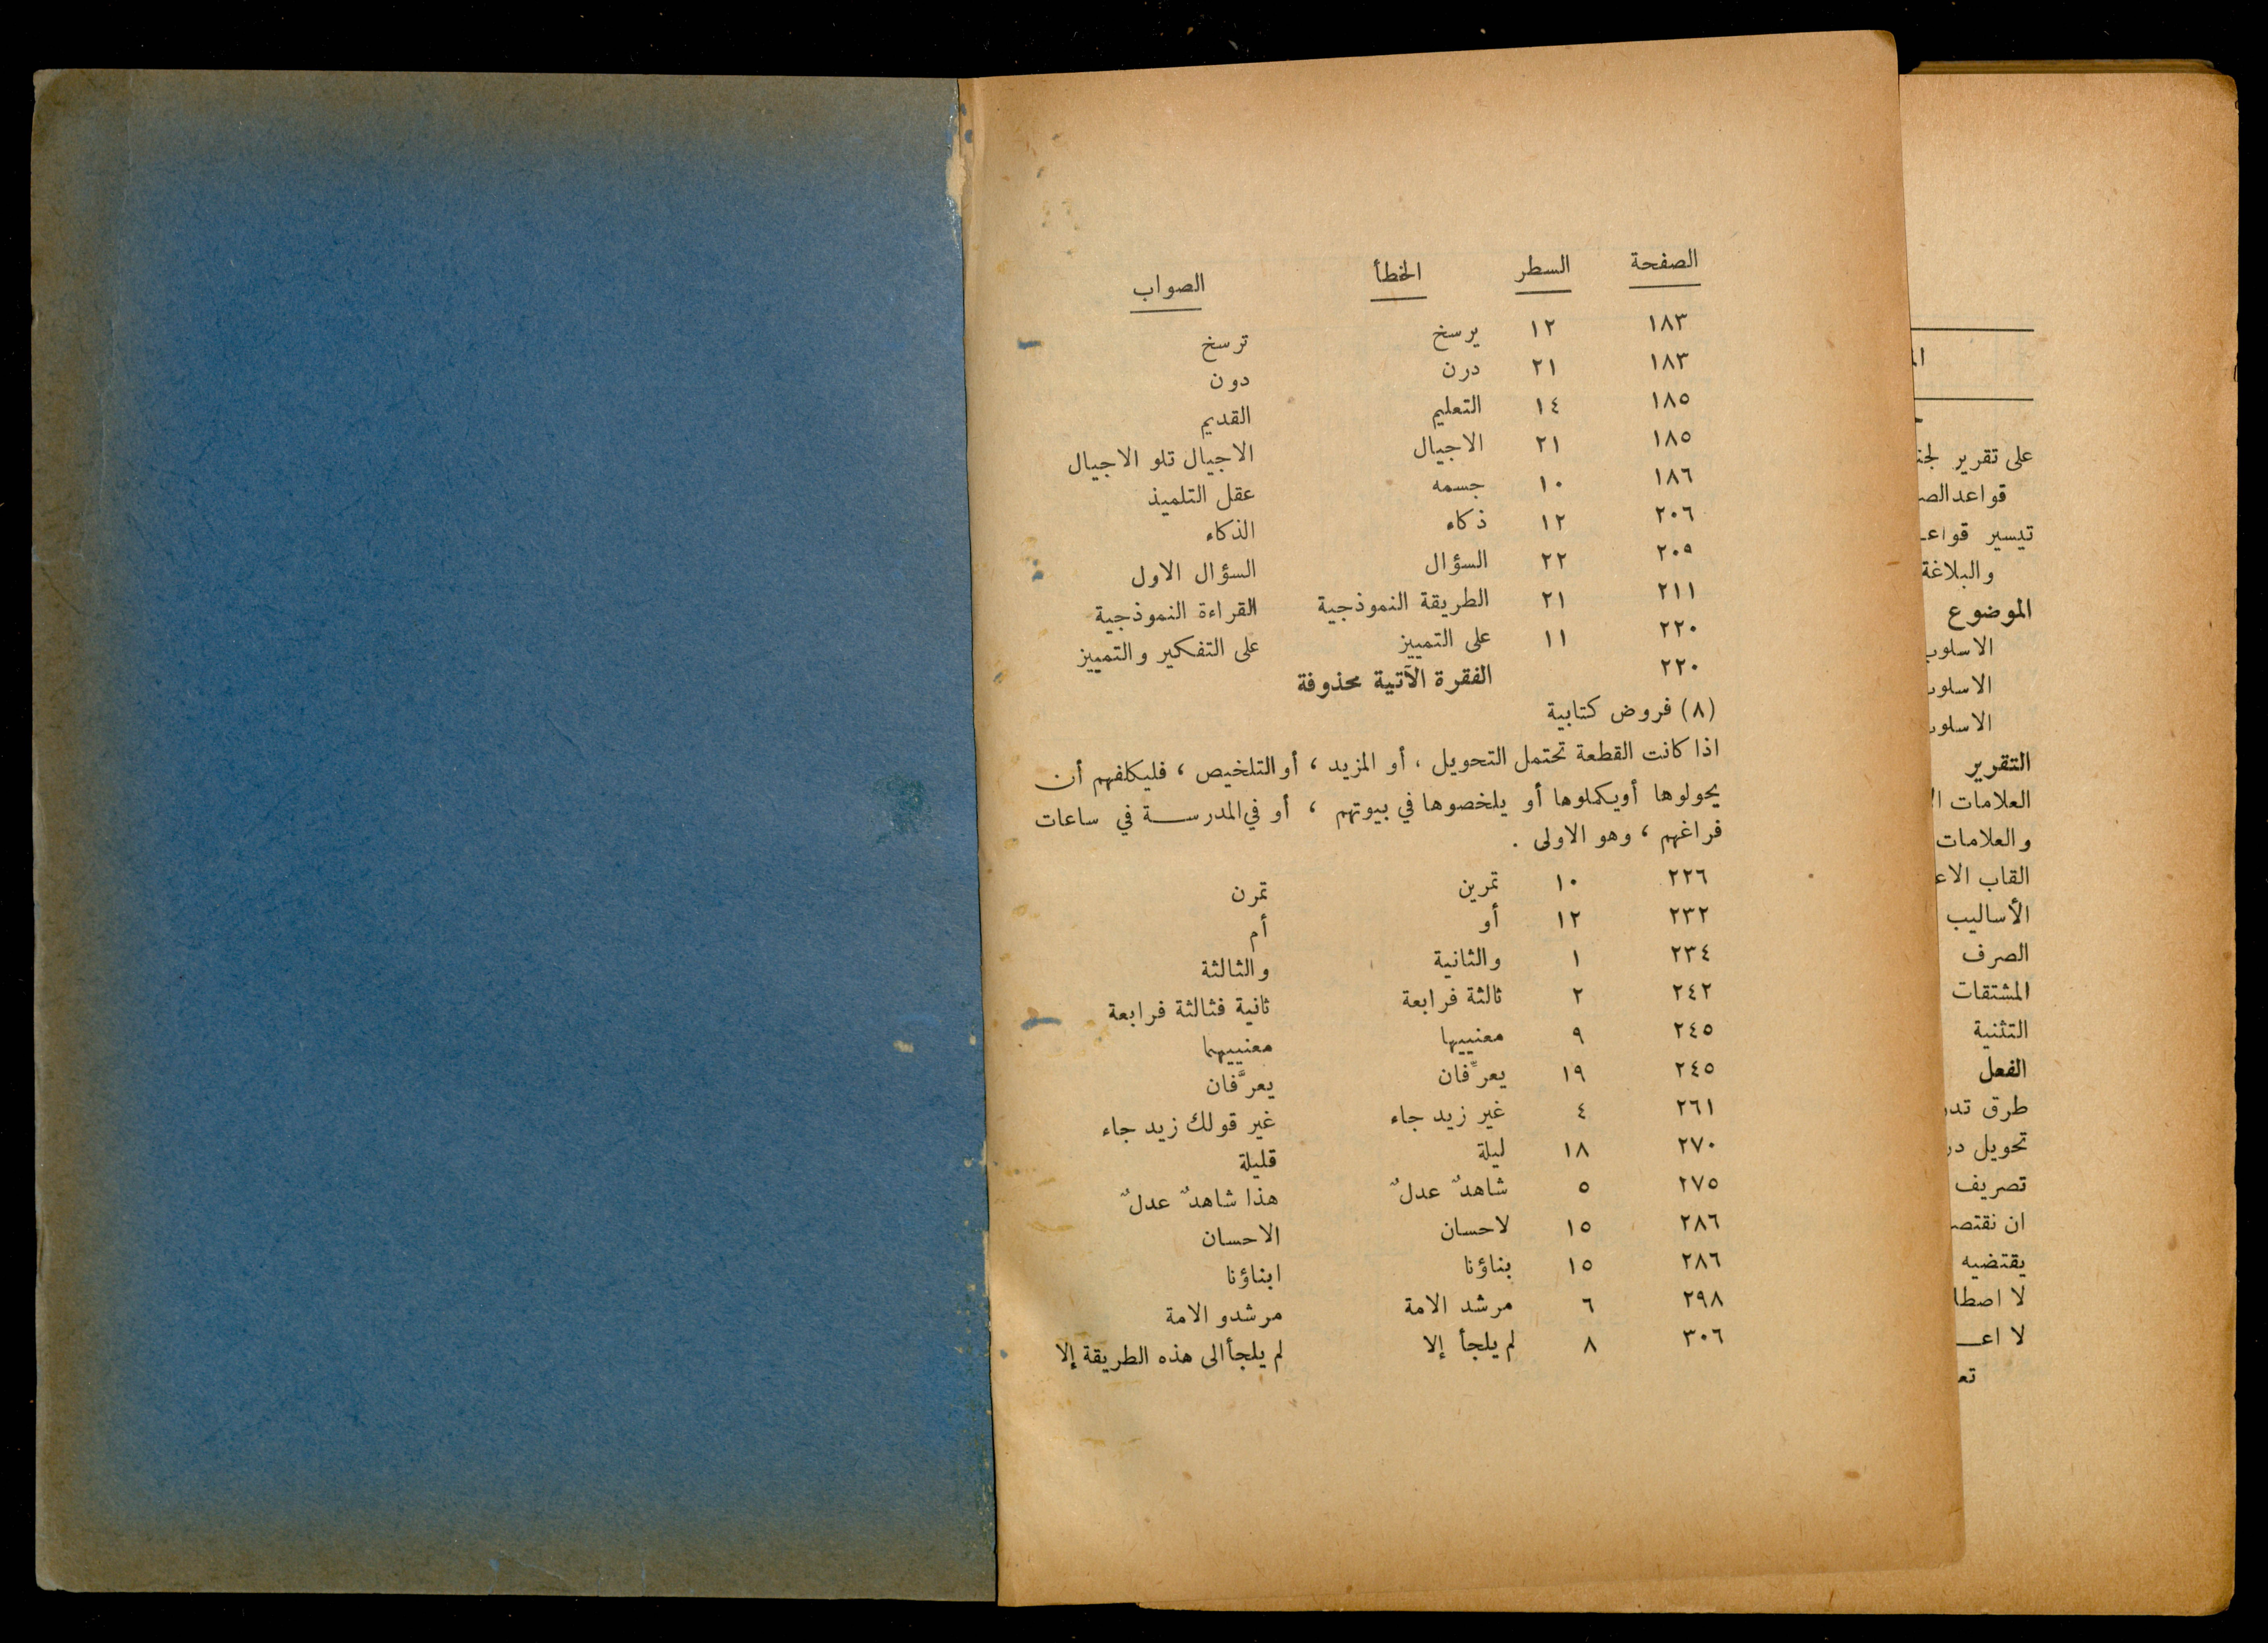 الصفحة السطر الخطأ الصواب
١٨٣ ١٢ يرسخ ترسخ
١٨٣ ٢١ درن دون
١٨٥ ١٤ التعليم القديم
١٨٥ ٢١ الاجيال الاجيال تلو الاجيال
١٨٦ ١٠ جسمه عقل التلميذ
٢٠٦ ١٢ ذكاء الذكاء
٢٠٩ ٢٢ السؤال السؤال الاول
٢١١ ٢١ الطريقة النموذجية القراءة النموذجية
٢٢٠ ١١ على التمييز على التفكير والتمييز
٢٢٠ الفقرة الآتية محذوفة
(٨) فروض كتابية
اذا كانت القطعة تحتمل التحويل ، أو المزيد ، أو التلخيص ، فليكلفهم أن
يحولوها أو يكملوها أو يلخصوها في بيوتهم ، أو في المدرسة في ساعات
فراغهم ، وهو الاولى .
٢٢٦ ١٠ تمرين تمرن
٢٣٢ ١٢ أو أم
٢٣٤ ١ والثانية والثالثة
٢٤٢ ٢ ثالثة فرابعة ثانية فثالثة فرابعة
٢٤٥ ٩ معنييها معنييهما
٢٤٥ ١٩ يعرِّفان يعرَّفان
٢٦١ ٤ غير زيد جاء غير قولك زيد جاء
٢٧٠ ١٨ ليلة قليلة
٢٧٥ ٥ شاهدٌ عدلٌ هذا شاهدٌ عدلٌ
٢٨٦ ١٥ لاحسان الاحسان
٢٨٦ ١٥ بناؤنا ابناؤنا
٢٩٨ ٦ مرشد الامة مرشدو الامة
٣٠٦ ٨ لم يلجأ إلا لم يلجأ الى هذه الطريقة إلا
على تقرير
تيسير
والبلاغة
الموضوع
التقرير
العلامات
والعلامات
القاب
الأساليب
الصرف
المشتقات
التثنية
الفعل
طرق
تحويل
تصريف
ان
يقتضيه
لا
لا